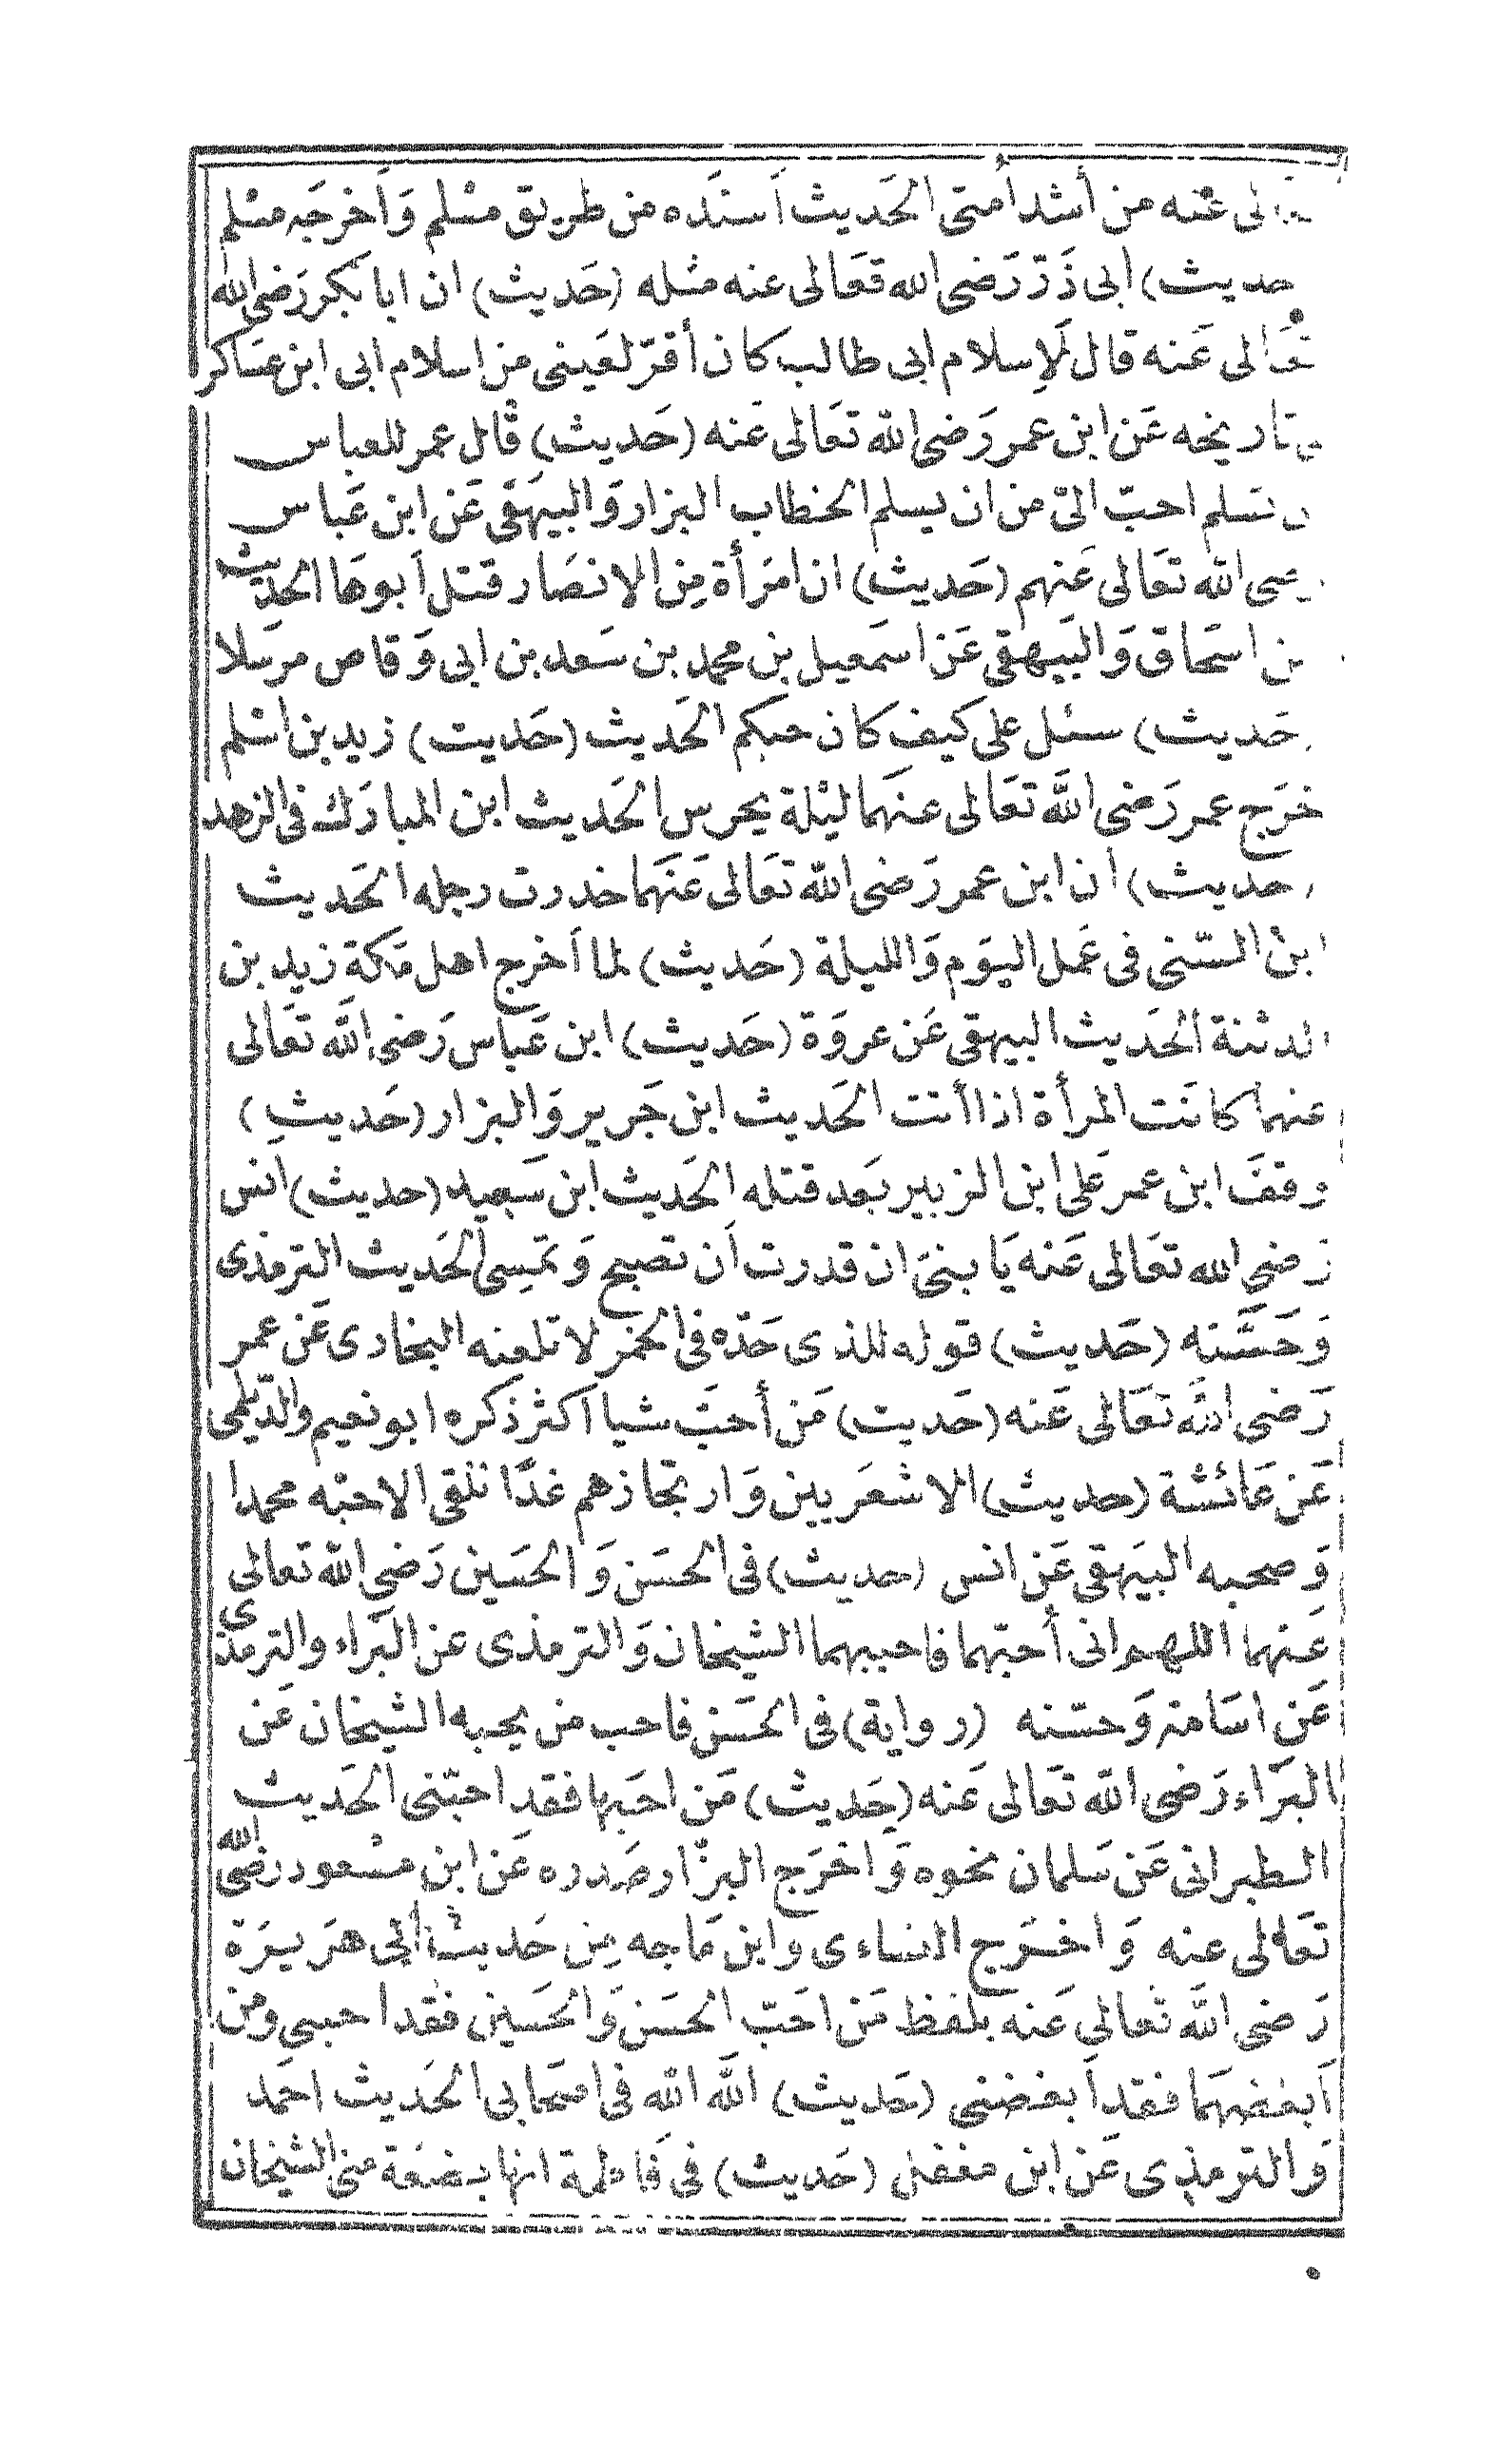 لى عنه من أشد أمتى الحَديث أسنَده من طريق مسْلم وَأخرجَه مسْلم
حديث) ابى ذَرّ رَضى الله تعَالى عنه مثله (حَديث) ان ابا بكر رَضى الله
تعَالى عَنه قال لَإسلام ابى طالب كان أقرّ لعَينى من اسلام ابى ابن عسَاكر
تاريخه عَن ابن عمر رَضى الله تعَالى عَنه (حَديث) قال عمر للعباس
تسلم احبّ الىّ من ان يسلم الخطاب البزار وَالبيهَقى عَن ابن عَباس
ضى الله تعَالى عَنهم (حَديث) ان امرَأة مِن الانصَار قتل أبوهَا الحَديث
بن اسحَاق وَالبَيهقى عَن اسمَعيل بن محمد بن سَعد بن ابى وَقاص مرسَلا
حَديث) سئل على كيف كان حبكم الحَديث (حَديث) زيد بن اسْلم
خرَج عمر رَضى الله تعَالى عنهَما ليْلة يحرس الحَديث ابن المبارَك فى الزهد
حديث) أن ابن عمر رَضى الله تعَالى عَنهَما خدرت رجله الحَديث
ابن السّنى فى عَمل اليوَم وَالليلة (حَديث) لما أخرج اهل مَكة زيد بن
الدثنة الحَديث البيهقى عَن عروَة (حَديث) ابن عَباس رَضى الله تعَالى
عنهما كانَت المرأة اذا أتت الحَديث ابن جَرير وَالبزار (حَديث)
وقفَ ابن عمر عَلى ابن الزبير بعَد قتله الحَديث ابن سَعيد (حديث) أنس
رَضى الله تعَالى عَنه يَا بنىَ ان قدرت أن تصبح وَتمسى الحَديث الترمذى
وَحَسَّنه (حَديث) قوله للذى حَدّه فى الخمر لا تلعنه البخارى عَن عمر
رَضى الله تعَالى عَنه (حَديث) مَن أحبَّ شيا أكثر ذكره ابو نعيم والدّيلمى
عَن عَائشْة (حديث) الاشعَريين وَارتجازهم غدًا نلقى الاحبْه محمدا
وَصحبه البيَهقى عَن انس (حديث) فى الحسَن وَالحسَين رَضى الله تعالى
عَنهما اللهم انى أحبّهما فاحببهما الشيخان وَالترمذى عن البَراء والترمذى
عَن اسَامة وَحسّنه (رواية) فى الحسَن فاحب من يحبه الشيخان عَن
البَرّاء رَضى الله تعَالى عَنه (حَديث) مَن احبَهما فقد احبّنى الحَديث
الطبرانى عَن سَلمان نحوه وَاخرَج البزّار صَدره عَن ابن مسْعود رضى الله
تعَالى عنه وَاخرَج النساءى وابن مَاجه مِن حَديث أبى هرَيرَة
رَضى الله تعالى عَنه بلفظ مَن احَبّ الحسَن وَالحسَين فقد احبنى ومن
أبغضهَما فقد أبغضنى (حَديث) الله الله فى اصحَابى الحَديث احمَد
وَالترمذى عَن ابن مغفل (حَديث) فى فَاطمة انها بضعَة منى الشيخان